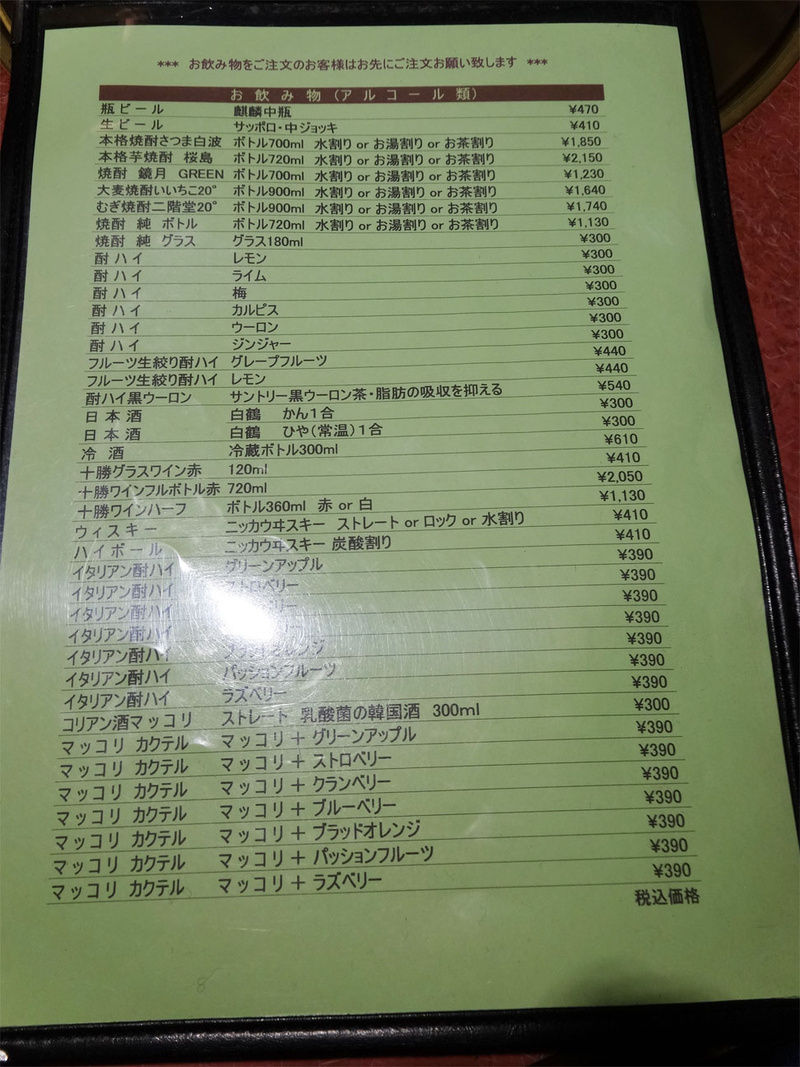 *** お飲み物をご注文のお客様はお先にご注文お願い致します ***
お飲み物(アルコール類)
瓶ビール 麒麟中瓶 ¥470
生ビール サッポロ・中ジョッキ ¥410
本格焼酎さつま白波 ボトル700ml 水割り or お湯割り or お茶割り ¥1,850
本格芋焼酎 桜島 ボトル720ml 水割り or お湯割り or お茶割り ¥2,150
焼酎 鏡月 GREEN ボトル700ml 水割り or お湯割り or お茶割り ¥1,230
大麦焼酎いいちこ20° ボトル900ml 水割り or お湯割り or お茶割り ¥1,640
むぎ焼酎二階堂20° ボトル900ml 水割り or お湯割り or お茶割り ¥1,740
焼酎 純 ボトル ボトル720ml 水割り or お湯割り or お茶割り ¥1,130
焼酎 純 グラス グラス180ml ¥300
酎ハイ レモン ¥300
酎ハイ ライム ¥300
酎ハイ 梅 ¥300
酎ハイ カルピス ¥300
酎ハイ ウーロン ¥300
酎ハイ ジンジャー ¥300
フルーツ生絞り酎ハイ グレープフルーツ ¥440
フルーツ生絞り酎ハイ レモン ¥440
酎ハイ黒ウーロン サントリー黒ウーロン茶・脂肪の吸収を抑える ¥540
日本酒 白鶴 かん1合 ¥300
日本酒 白鶴 ひや(常温)1合 ¥300
冷酒 冷蔵ボトル300ml ¥610
十勝グラスワイン赤 120ml ¥410
十勝ワインフルボトル赤 720ml ¥2,050
十勝ワインハーフ ボトル360ml 赤 or 白 ¥1,130
ウィスキー ニッカウヰスキー ストレート or ロック or 水割り ¥410
ハイボール ニッカウヰスキー 炭酸割り ¥410
イタリアン酎ハイ グリーンアップル ¥390
イタリアン酎ハイ ストロベリー ¥390
イタリアン酎ハイ ¥390
イタリアン酎ハイ ¥390
イタリアン酎ハイ ブラッドオレンジ ¥390
イタリアン酎ハイ パッションフルーツ ¥390
イタリアン酎ハイ ラズベリー ¥390
コリアン酒マッコリ ストレート 乳酸菌の韓国酒 300ml ¥300
マッコリ カクテル マッコリ＋グリーンアップル ¥390
マッコリ カクテル マッコリ＋ストロベリー ¥390
マッコリ カクテル マッコリ＋クランベリー ¥390
マッコリ カクテル マッコリ＋ブルーベリー ¥390
マッコリ カクテル マッコリ＋ブラッドオレンジ ¥390
マッコリ カクテル マッコリ＋パッションフルーツ ¥390
マッコリ カクテル マッコリ＋ラズベリー ¥390
税込価格